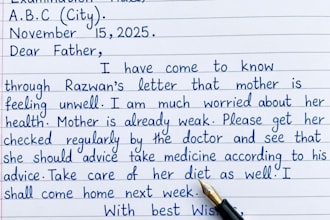 Examination Hall,
A.B.C (City).
November 15, 2025.
Dear Father,
I have come to know
through Razwan's letter that mother is
feeling unwell. I am much worried about her
health. Mother is already weak. Please get her
checked regularly by the doctor and see that
she should advice take medicine according to his
advice. Take care of her diet as well. I
shall come home next week.
With best Wis